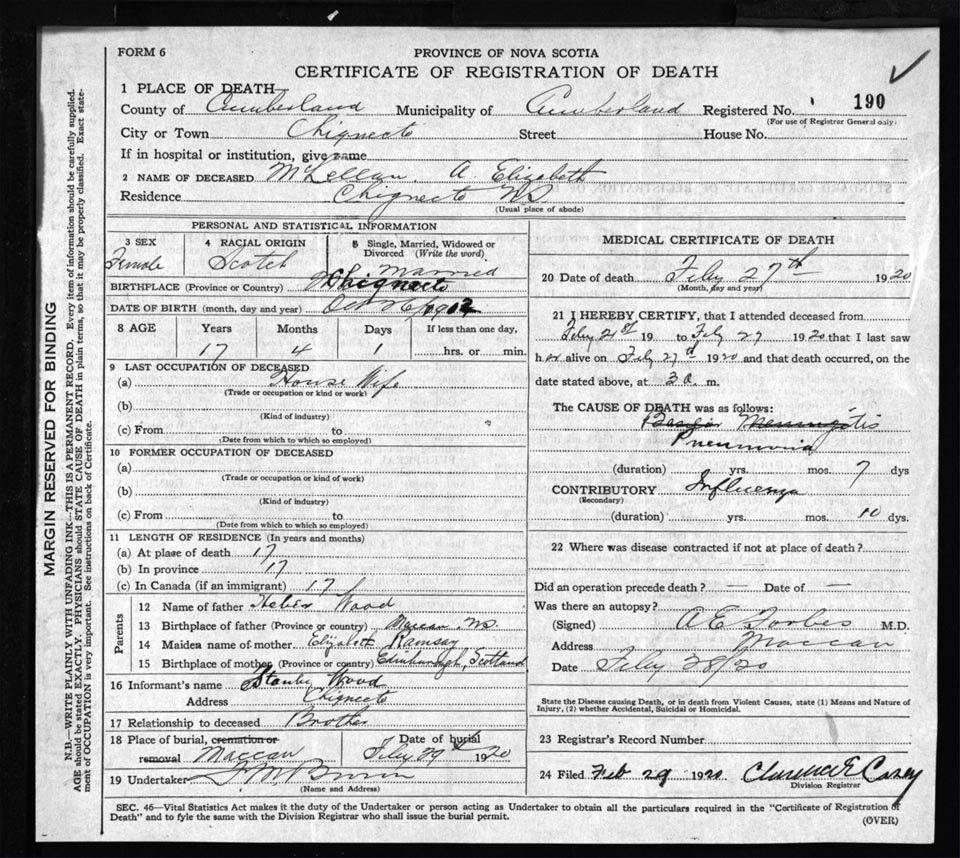 FORM 6
PROVINCE OF NOVA SCOTIA
CERTIFICATE OF REGISTRATION OF DEATH
1 PLACE OF DEATH
County of Cumberland Municipality of Cumberland Registered No. 190
(For use of Registrar General only)
City or Town Chignecto Street House No.
If in hospital or institution, give name
2 NAME OF DECEASED McLellan. A Elizabeth
Residence Chignecto NS
(Usual place of abode)
PERSONAL AND STATISTICAL INFORMATION
3 SEX 4 RACIAL ORIGIN 5 Single, Married, Widowed or Divorced (Write the word)
Female Scotch Married
BIRTHPLACE (Province or Country) Chignecto
DATE OF BIRTH (month, day and year) Oct 26/1902
8 AGE Years Months Days If less than one day,
17 4 1 hrs. or min.
9 LAST OCCUPATION OF DECEASED
(a) House Wife
(Trade or occupation or kind or work)
(b)
(Kind of industry)
(c) From to
(Date from which to which so employed)
10 FORMER OCCUPATION OF DECEASED
(a)
(Trade or occupation or kind of work)
(b)
(Kind of industry)
(c) From to
(Date from which to which so employed)
11 LENGTH OF RESIDENCE (In years and months)
(a) At place of death 17
(b) In province 17
(c) In Canada (if an immigrant) 17
Parents
12 Name of father Heber Wood
13 Birthplace of father (Province or country) Maccan NS
14 Maiden name of mother Elizabeth Ramsay
15 Birthplace of mother (Province or country) Edinburough, Scotland
16 Informant's name Stanley Wood
Address Chignecto
17 Relationship to deceased Brother
18 Place of burial, cremation or Date of burial
removal Maccan Feby 29th 1920
19 Undertaker
(Name and Address)
MEDICAL CERTIFICATE OF DEATH
20 Date of death Feby 27th 1920
(Month, day and year)
21 I HEREBY CERTIFY, that I attended deceased from
Feby 21st 19 to Feby 27 1920 that I last saw
her alive on Feby 27th 1920 and that death occurred, on the
date stated above, at 3 a. m.
The CAUSE OF DEATH was as follows:
Basilar Meningitis
Pneumonia
(duration) yrs. mos. 7 dys
CONTRIBUTORY Influenza
(Secondary)
(duration) yrs. mos. 10 dys.
22 Where was disease contracted if not at place of death?
Did an operation precede death? — Date of —
Was there an autopsy?
(Signed) A E Forbes M.D.
Address Maccan
Date Feby 28/20
State the Disease causing Death, or in death from Violent Causes, state (1) Means and Nature of
Injury, (2) whether Accidental, Suicidal or Homicidal.
23 Registrar's Record Number
24 Filed Feb 29 1920 Clarence E Casey
Division Registrar
SEC. 46—Vital Statistics Act makes it the duty of the Undertaker or person acting as Undertaker to obtain all the particulars required in the "Certificate of Registration of
Death" and to fyle the same with the Division Registrar who shall issue the burial permit.
(OVER)
MARGIN RESERVED FOR BINDING
N.B.—WRITE PLAINLY WITH UNFADING INK—THIS IS A PERMANENT RECORD. Every item of information should be carefully supplied.
AGE should be stated EXACTLY. PHYSICIANS should STATE CAUSE OF DEATH in plain terms, so that it may be properly classified. Exact state-
ment of OCCUPATION is very important. See instructions on back of Certificate.